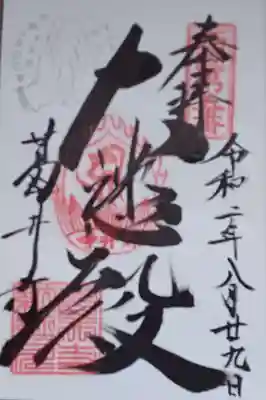 奉拝
令和二年八月廿九日
大悲殿
葛井寺